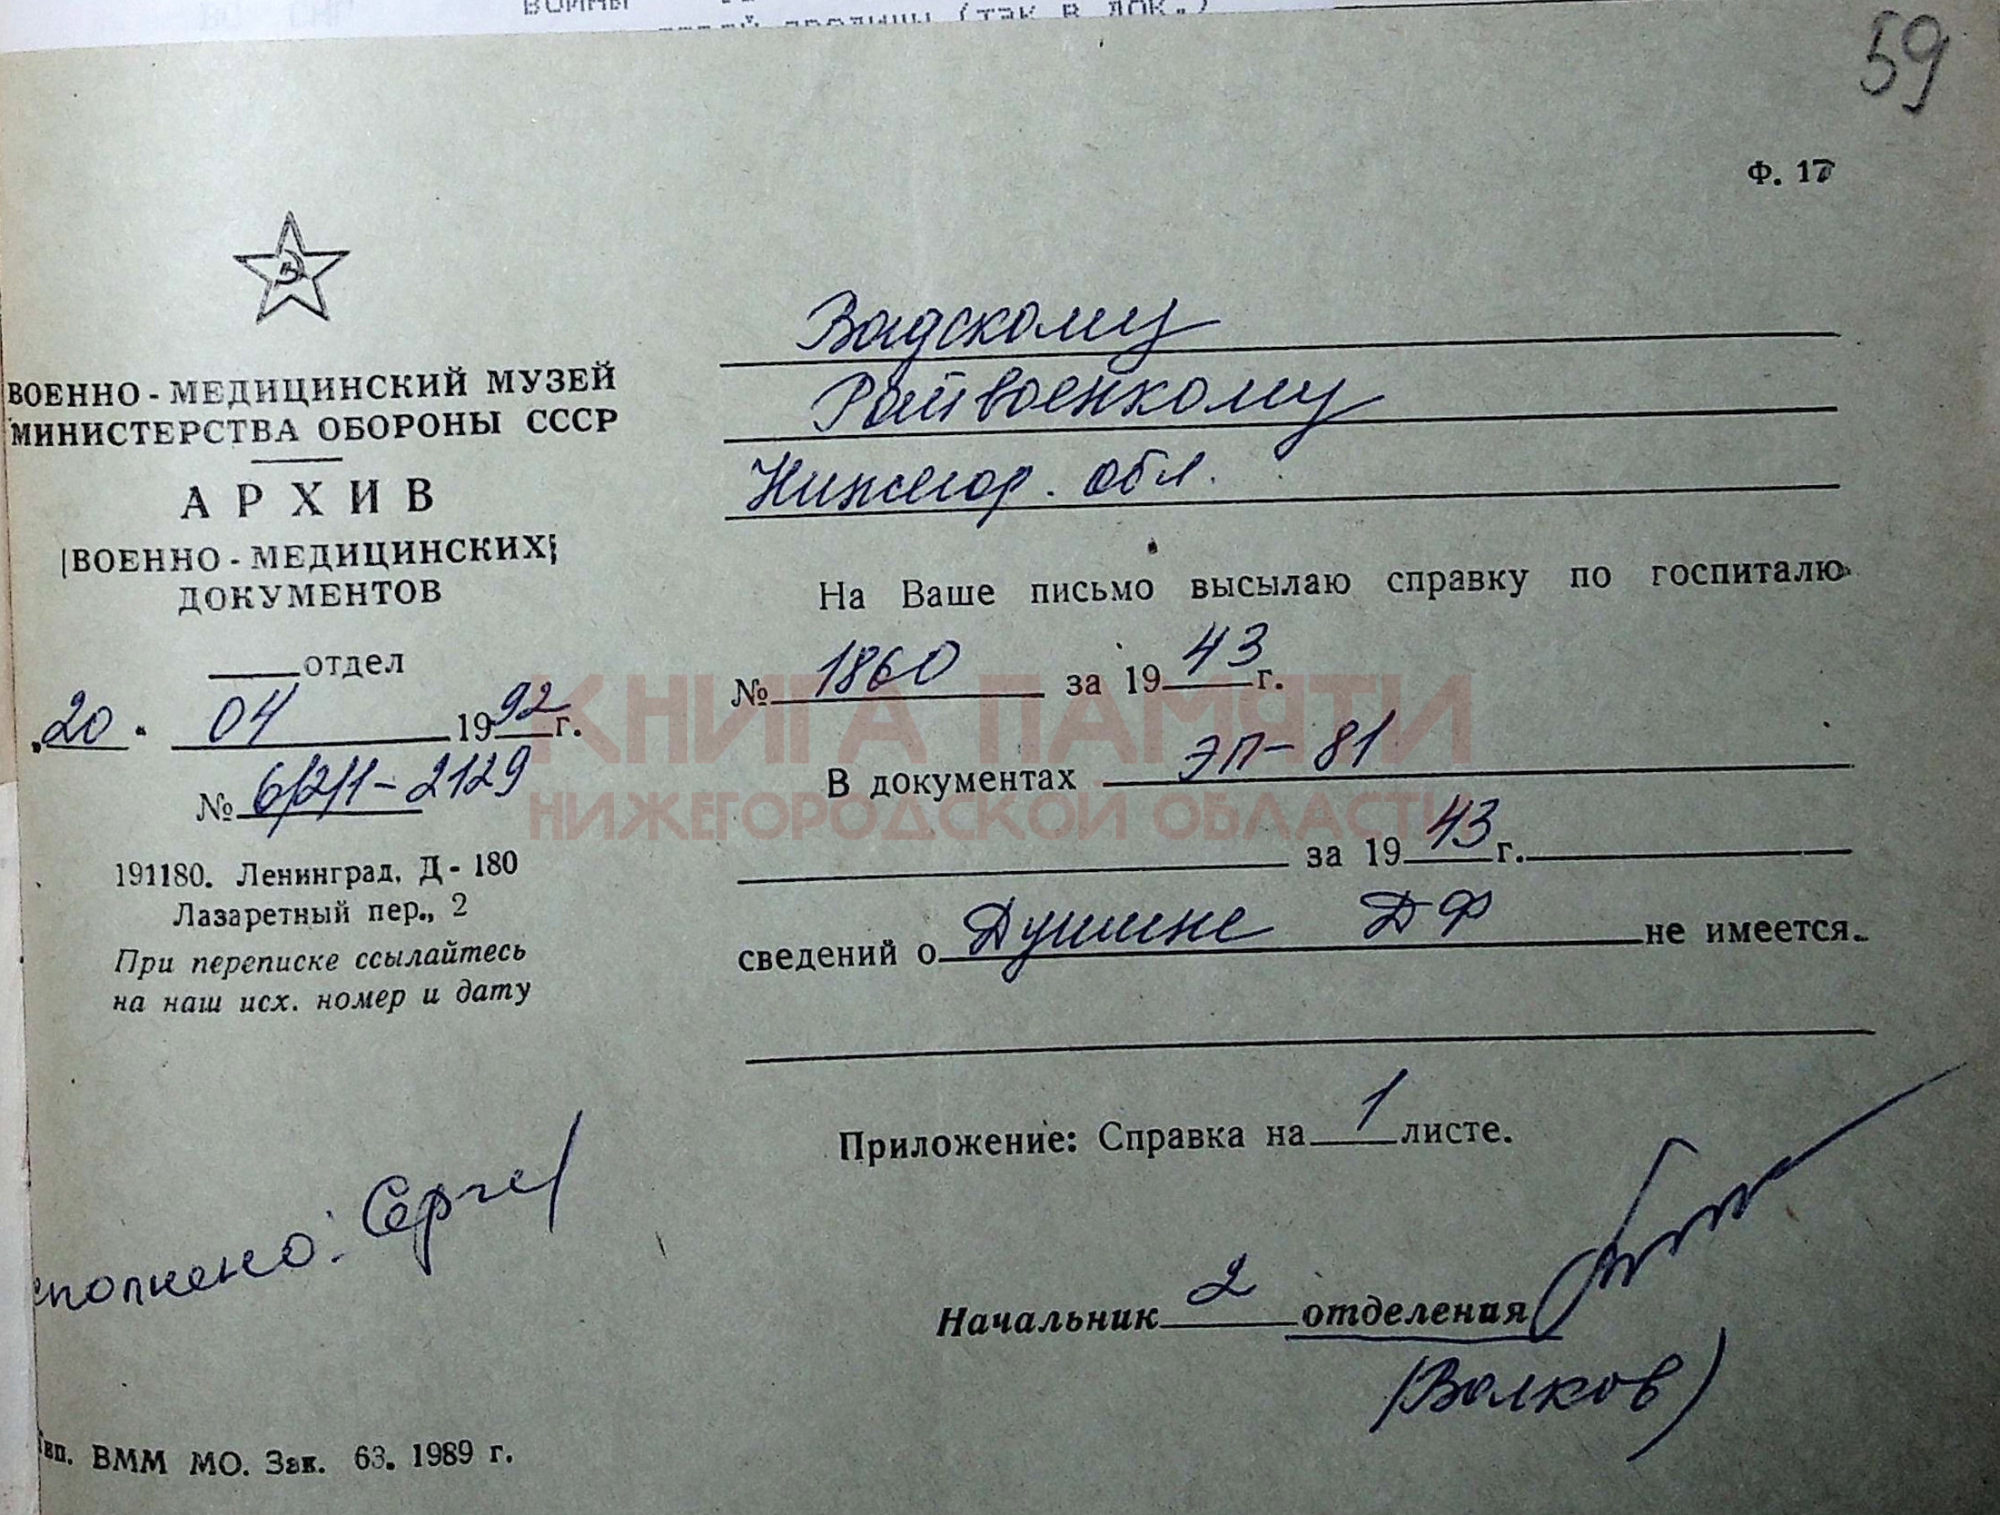 войны
(так в док.)
59
Ф. 17
ВОЕННО - МЕДИЦИНСКИЙ МУЗЕЙ
МИНИСТЕРСТВА ОБОРОНЫ СССР
АРХИВ
ВОЕННО - МЕДИЦИНСКИХ
ДОКУМЕНТОВ
отдел
20 04 1992 г.
№ 6/2/1-2129
191180. Ленинград, Д - 180
Лазаретный пер., 2
При переписке ссылайтесь
на наш исх. номер и дату
сполнено: 
Тип. ВММ МО. Зак. 63. 1989 г.
Вадскому
Райвоенкому
Нижегор. обл.
На Ваше письмо высылаю справку по госпиталю
№ 1860 за 1943 г.
В документах ЭП-81
за 1943 г.
сведений о Душине ДФ не имеется.
Приложение: Справка на 1 листе.
Начальник 2 отделения
(Волков)
КНИГА ПАМЯТИ
НИЖЕГОРОДСКОЙ ОБЛАСТИ